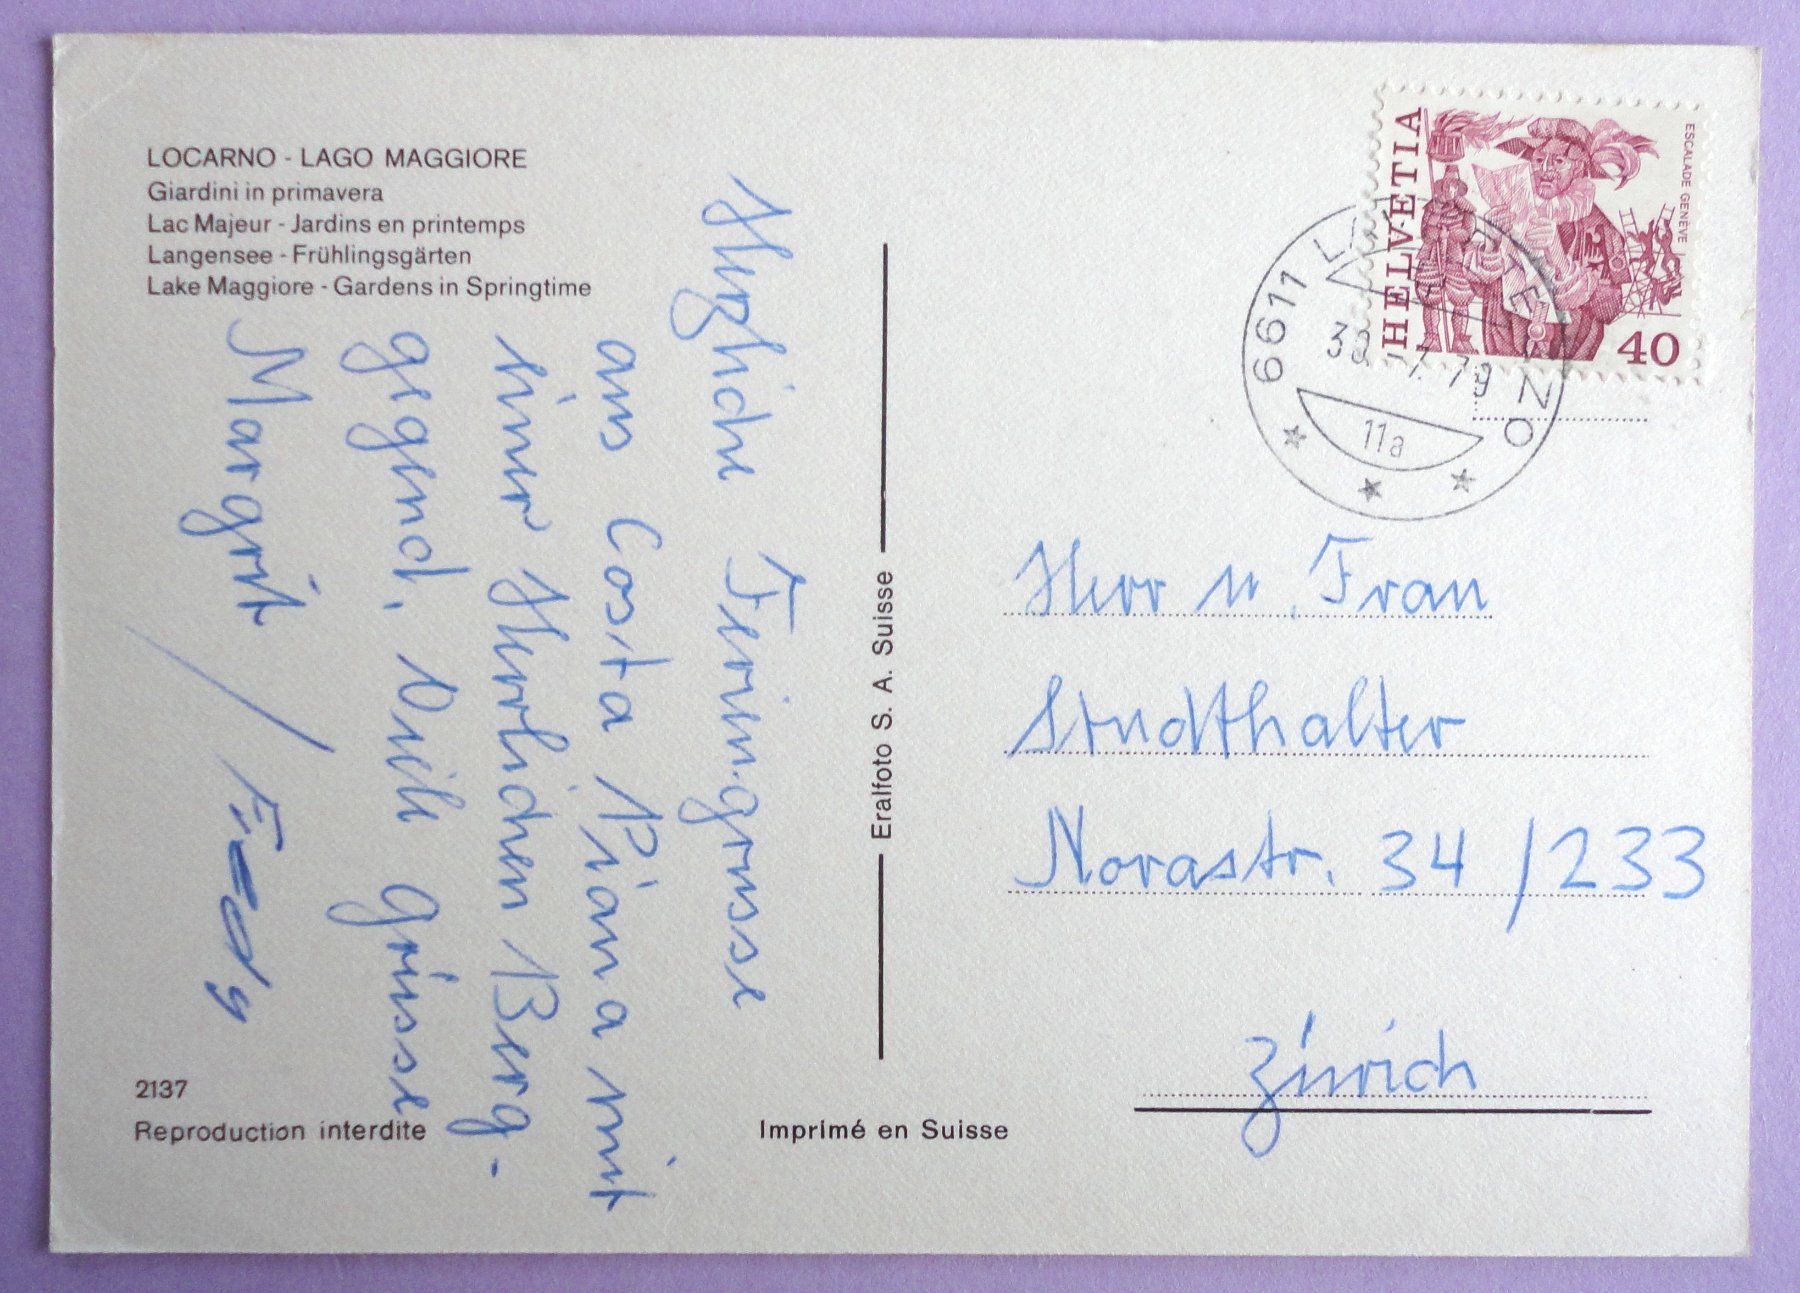 LOCARNO - LAGO MAGGIORE
Giardini in primavera
Lac Majeur - Jardins en printemps
Langensee - Frühlingsgärten
Lake Maggiore - Gardens in Springtime
Herzliche Feriengrusse
aus Costa Piana mit
einer Herrlichen Berg-
gegend, Viele Grüsse
Margrit / Fredy
2137
Reproduction interdite
Eralfoto S. A. Suisse
Imprimé en Suisse
HELVETIA
ESCALADE GENÈVE
40
6611
7.79
11a
Herr u. Frau
Stadthalter
Norastr. 34 / 233
Zürich